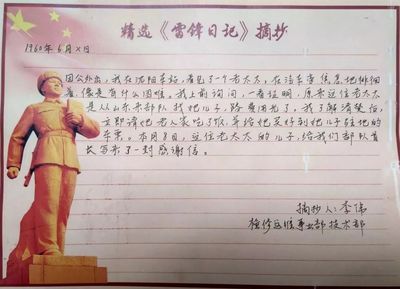 精选《雷锋日记》摘抄
1960年6月X日
因公外出，我在沈阳车站，看见了一个老太太，在汽车旁焦急地徘徊
着，像是有什么困难。我上前询问，一看证明，原来这位老太太
是从山东来部队找她儿子，路费用光了。我了解清楚后，
立即请她老人家吃了饭，并给她买好到她儿子驻地的
车票。本月8日，这位老太太的儿子，给我们部队首
长写来了一封感谢信。
摘抄人：李伟
检修运维事业部技术部